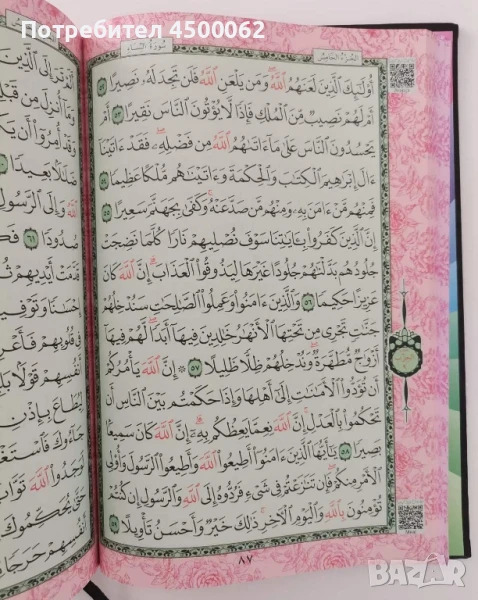 Потребител 4500062
الجُزْءُ الخَامِسُ
سُورَةُ النِّسَاءِ
أُوْلَٰٓئِكَ ٱلَّذِينَ لَعَنَهُمُ ٱللَّهُۖ وَمَن يَلْعَنِ ٱللَّهُ فَلَن تَجِدَ لَهُۥ نَصِيرًا ٥٢
أَمْ لَهُمْ نَصِيبٌ مِّنَ ٱلْمُلْكِ فَإِذًا لَّا يُؤْتُونَ ٱلنَّاسَ نَقِيرًا ٥٣ أَمْ
يَحْسُدُونَ ٱلنَّاسَ عَلَىٰ مَآ ءَاتَىٰهُمُ ٱللَّهُ مِن فَضْلِهِۦۖ فَقَدْ ءَاتَيْنَآ
ءَالَ إِبْرَٰهِيمَ ٱلْكِتَٰبَ وَٱلْحِكْمَةَ وَءَاتَيْنَٰهُم مُّلْكًا عَظِيمًا ٥٤
فَمِنْهُم مَّنْ ءَامَنَ بِهِۦ وَمِنْهُم مَّن صَدَّ عَنْهُۚ وَكَفَىٰ بِجَهَنَّمَ سَعِيرًا ٥٥
إِنَّ ٱلَّذِينَ كَفَرُوا۟ بِـَٔايَٰتِنَا سَوْفَ نُصْلِيهِمْ نَارًا كُلَّمَا نَضِجَتْ
جُلُودُهُم بَدَّلْنَٰهُمْ جُلُودًا غَيْرَهَا لِيَذُوقُوا۟ ٱلْعَذَابَۗ إِنَّ ٱللَّهَ كَانَ
عَزِيزًا حَكِيمًا ٥٦ وَٱلَّذِينَ ءَامَنُوا۟ وَعَمِلُوا۟ ٱلصَّٰلِحَٰتِ سَنُدْخِلُهُمْ
جَنَّٰتٍ تَجْرِى مِن تَحْتِهَا ٱلْأَنْهَٰرُ خَٰلِدِينَ فِيهَآ أَبَدًاۖ لَّهُمْ فِيهَآ
أَزْوَٰجٌ مُّطَهَّرَةٌۖ وَنُدْخِلُهُمْ ظِلًّا ظَلِيلًا ٥٧ ۞ إِنَّ ٱللَّهَ يَأْمُرُكُمْ
أَن تُؤَدُّوا۟ ٱلْأَمَٰنَٰتِ إِلَىٰٓ أَهْلِهَا وَإِذَا حَكَمْتُم بَيْنَ ٱلنَّاسِ أَن
تَحْكُمُوا۟ بِٱلْعَدْلِۚ إِنَّ ٱللَّهَ نِعِمَّا يَعِظُكُم بِهِۦٓۗ إِنَّ ٱللَّهَ كَانَ سَمِيعًۢا
بَصِيرًا ٥٨ يَٰٓأَيُّهَا ٱلَّذِينَ ءَامَنُوٓا۟ أَطِيعُوا۟ ٱللَّهَ وَأَطِيعُوا۟ ٱلرَّسُولَ وَأُو۟لِى
ٱلْأَمْرِ مِنكُمْۖ فَإِن تَنَٰزَعْتُمْ فِى شَىْءٍ فَرُدُّوهُ إِلَى ٱللَّهِ وَٱلرَّسُولِ إِن كُنتُمْ
تُؤْمِنُونَ بِٱللَّهِ وَٱلْيَوْمِ ٱلْـَٔاخِرِۚ ذَٰلِكَ خَيْرٌ وَأَحْسَنُ تَأْوِيلًا ٥٩
٨٧
أَلَمْ تَرَ إِلَى ٱلَّذِينَ
وَمَآ أُنزِلَ مِن قَبْلِ
وَقَدْ أُمِرُوٓا۟ أَن يَكْ
ضَلَٰلًۢا بَعِيدًا ٦٠
ٱللَّهُ وَإِلَى ٱلرَّسُولِ
صُدُودًا ٦١ فَكَ
قَدَّمَتْ أَيْدِيهِمْ ثُ
إِحْسَٰنًا وَتَوْفِي
فِى قُلُوبِهِمْ فَأَعْرِ
أَنفُسِهِمْ قَوْلًۢا بَ
لِيُطَاعَ بِإِذْنِ
جَآءُوكَ فَٱسْتَغْ
لَوَجَدُوا۟ ٱللَّهَ تَوَّابً
يُحَكِّمُوكَ
أَنفُسِهِمْ حَرَجًا
BAZAR